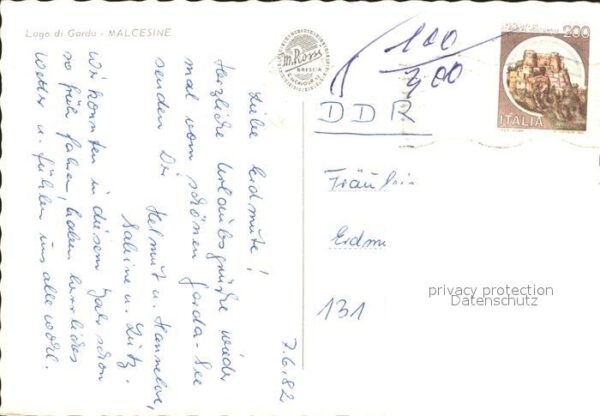 Lago di Garda - MALCESINE
m. Roris
BRESCIA
100
300
200
ITALIA
DDR
Fräulein
Erdmu
131
privacy protection
Datenschutz
7.6.82
Liebe Erdmute!
Herzliche Urlaubsgrüße wieder
mal vom schönen Garda-See
senden Dir Helmut u. Hannelore,
Sabine u. Lutz.
Wir konnten in diesem Jahr schon
so früh fahren, haben herrliches
Wetter u. fühlen uns alle wohl.